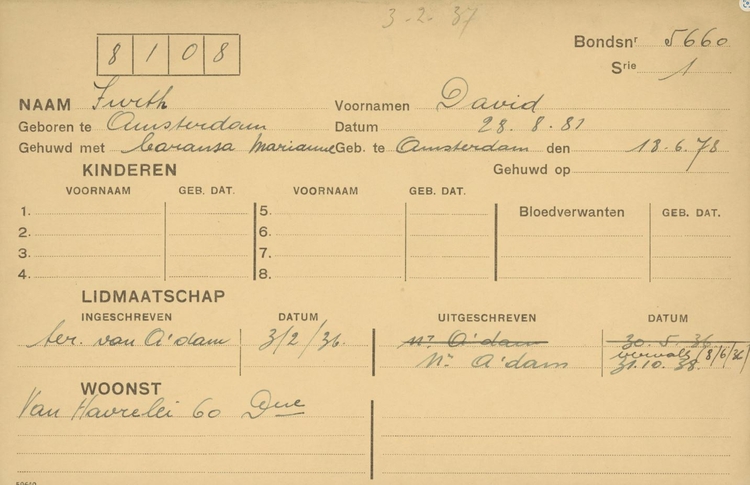 3-2-37
8 1 0 8
Bondsnr 5660
Srie 1
NAAM Furth Voornamen David
Geboren te Amsterdam Datum 28.8.81
Gehuwd met Caransa Marianne Geb. te Amsterdam den 18.6.78
KINDEREN Gehuwd op
VOORNAAM GEB. DAT. VOORNAAM GEB. DAT.
Bloedverwanten GEB. DAT.
1. 5.
2. 6.
3. 7.
4. 8.
LIDMAATSCHAP
INGESCHREVEN DATUM UITGESCHREVEN DATUM
ter. van A'dam 3/2/36. nr A'dam 30.5.36
vervalt (8/6/36)
Nr A'dam 31.10.38.
WOONST
Van Havrelei 60 Dne